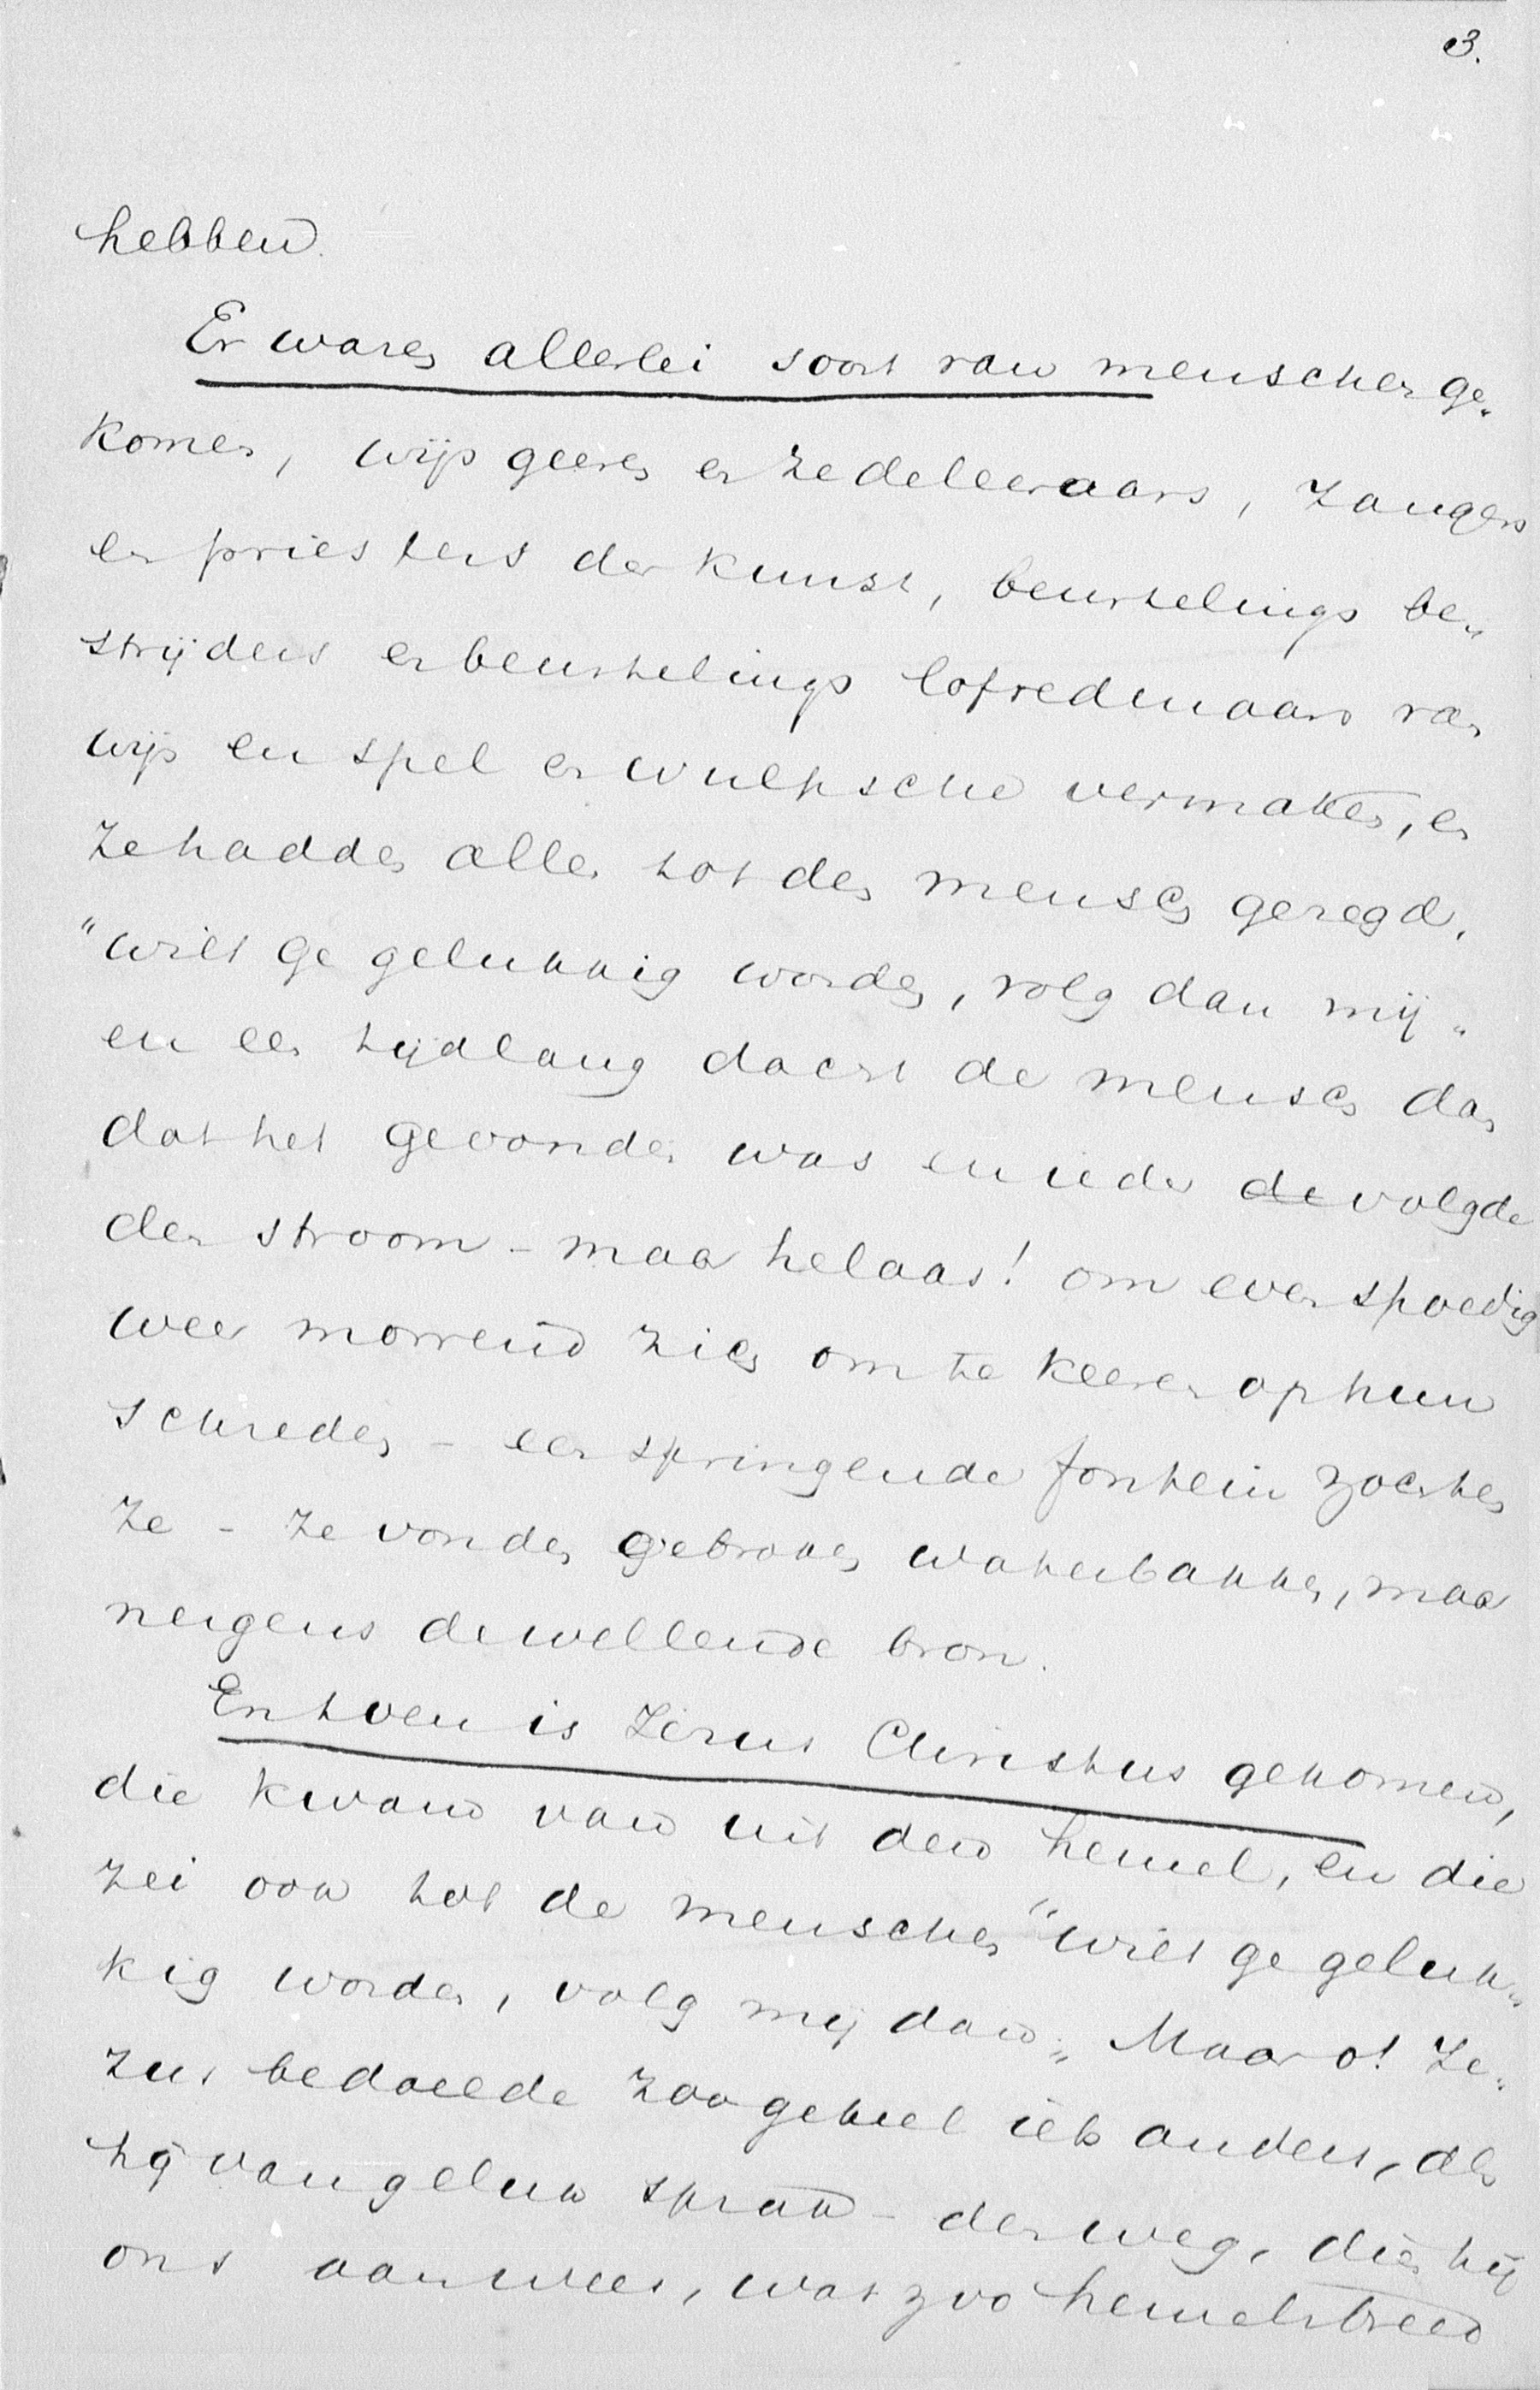 3.
hebben.
Er waren allerlei soort van menschen ge-
komen, wijsgeeren en zedeleeraars, zangers
en priesters der kunst, beurtelings be-
strijders en beurtelings lofredenaars van
wijn en spel en wulpsche vermaken, en
ze hadden allen tot den mensch gezegd,
"wilt ge gelukkig worden, volg dan mij"
en een tijdlang dacht de mensch dan
dat het gevonden was en ieder de volgde
den stroom - maar helaas! om even spoedig
weer morrend zich om te keeren op hun
schreden - een springende fontein zochten
ze - ze vonden gebroken waterbakken, maar
nergens de wellende bron.
En toen is Jezus Christus gekomen,
die kwam van uit den hemel, en die
zei ook tot de menschen "wilt ge geluk-
kig worden, volg mij dan". Maar o! Je-
zus bedoelde zoo geheel iets anders, als
hij van geluk sprak - den weg, dien hij
ons aanwees, was zoo hemelsbreed